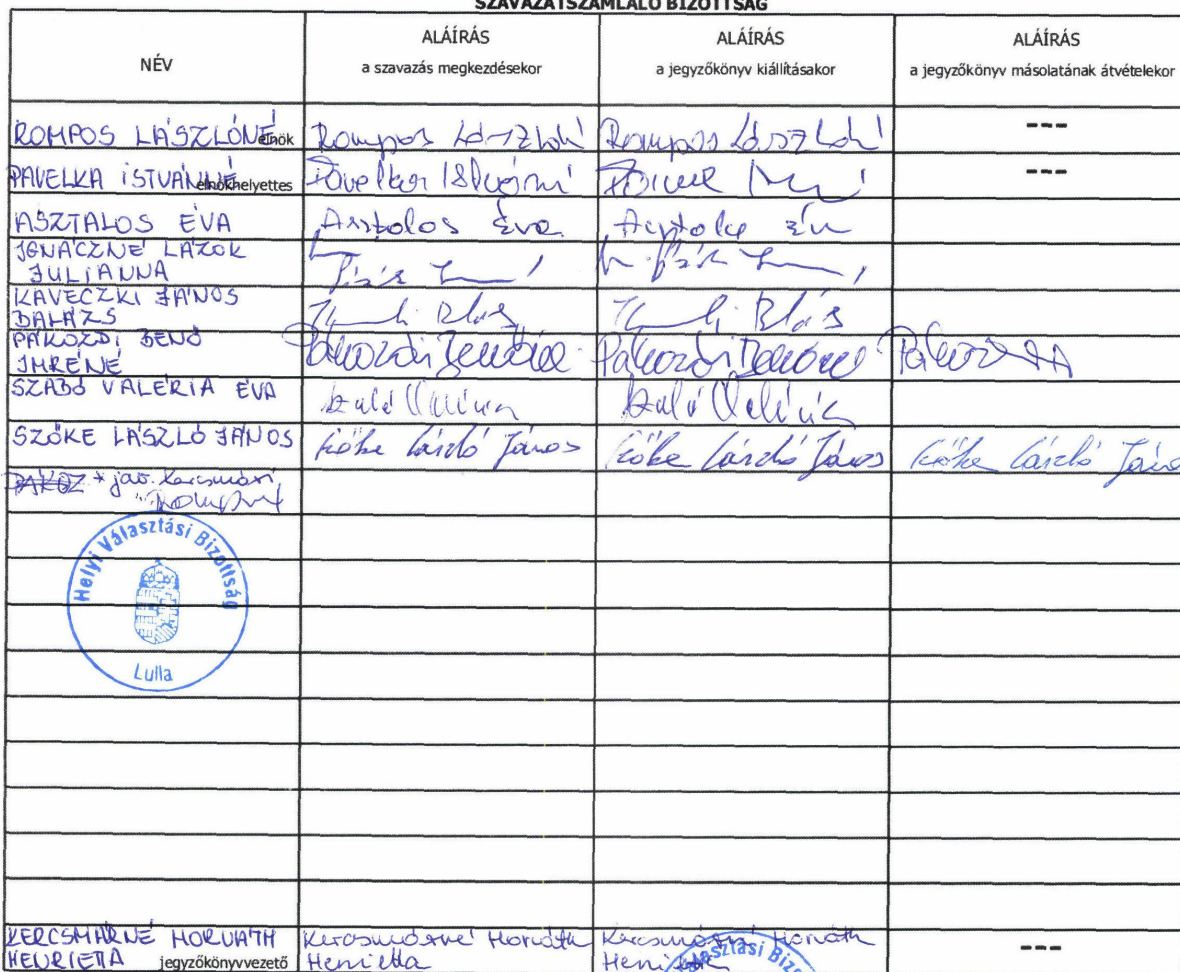 SZAVAZATSZÁMLÁLÓ BIZOTTSÁG
NÉV
ALÁÍRÁS
a szavazás megkezdésekor
ALÁÍRÁS
a jegyzőkönyv kiállításakor
ALÁÍRÁS
a jegyzőkönyv másolatának átvételekor
ROMPOS LÁSZLÓNÉ elnök Rompos Lászlóné Rompos Lászlóné ---
PAVELKA ISTVÁNNÉ elnökhelyettes Pavelka Istvánné ---
ASZTALOS ÉVA Asztalos Éva Asztalos Éva
IGNÁCZNÉ LÁZOK
JULIANNA
KAVECZKI JÁNOS
BALÁZS
PÁKOZDI JENŐ
IMRÉNÉ Pákozdi Jenőné Pákozdi Jenőné
SZABÓ VALÉRIA ÉVA Szabó Valéria Szabó Valéria
SZŐKE LÁSZLÓ JÁNOS Szőke László János Szőke László János Szőke László János
PAKOZ * jav. Kercsmárné
Helyi Választási Bizottság
Lulla
KERCSMÁRNÉ HORVÁTH Kercsmárné Horváth Kercsmárné Horváth
HENRIETTA jegyzőkönyvvezető Henrietta Henrietta ---